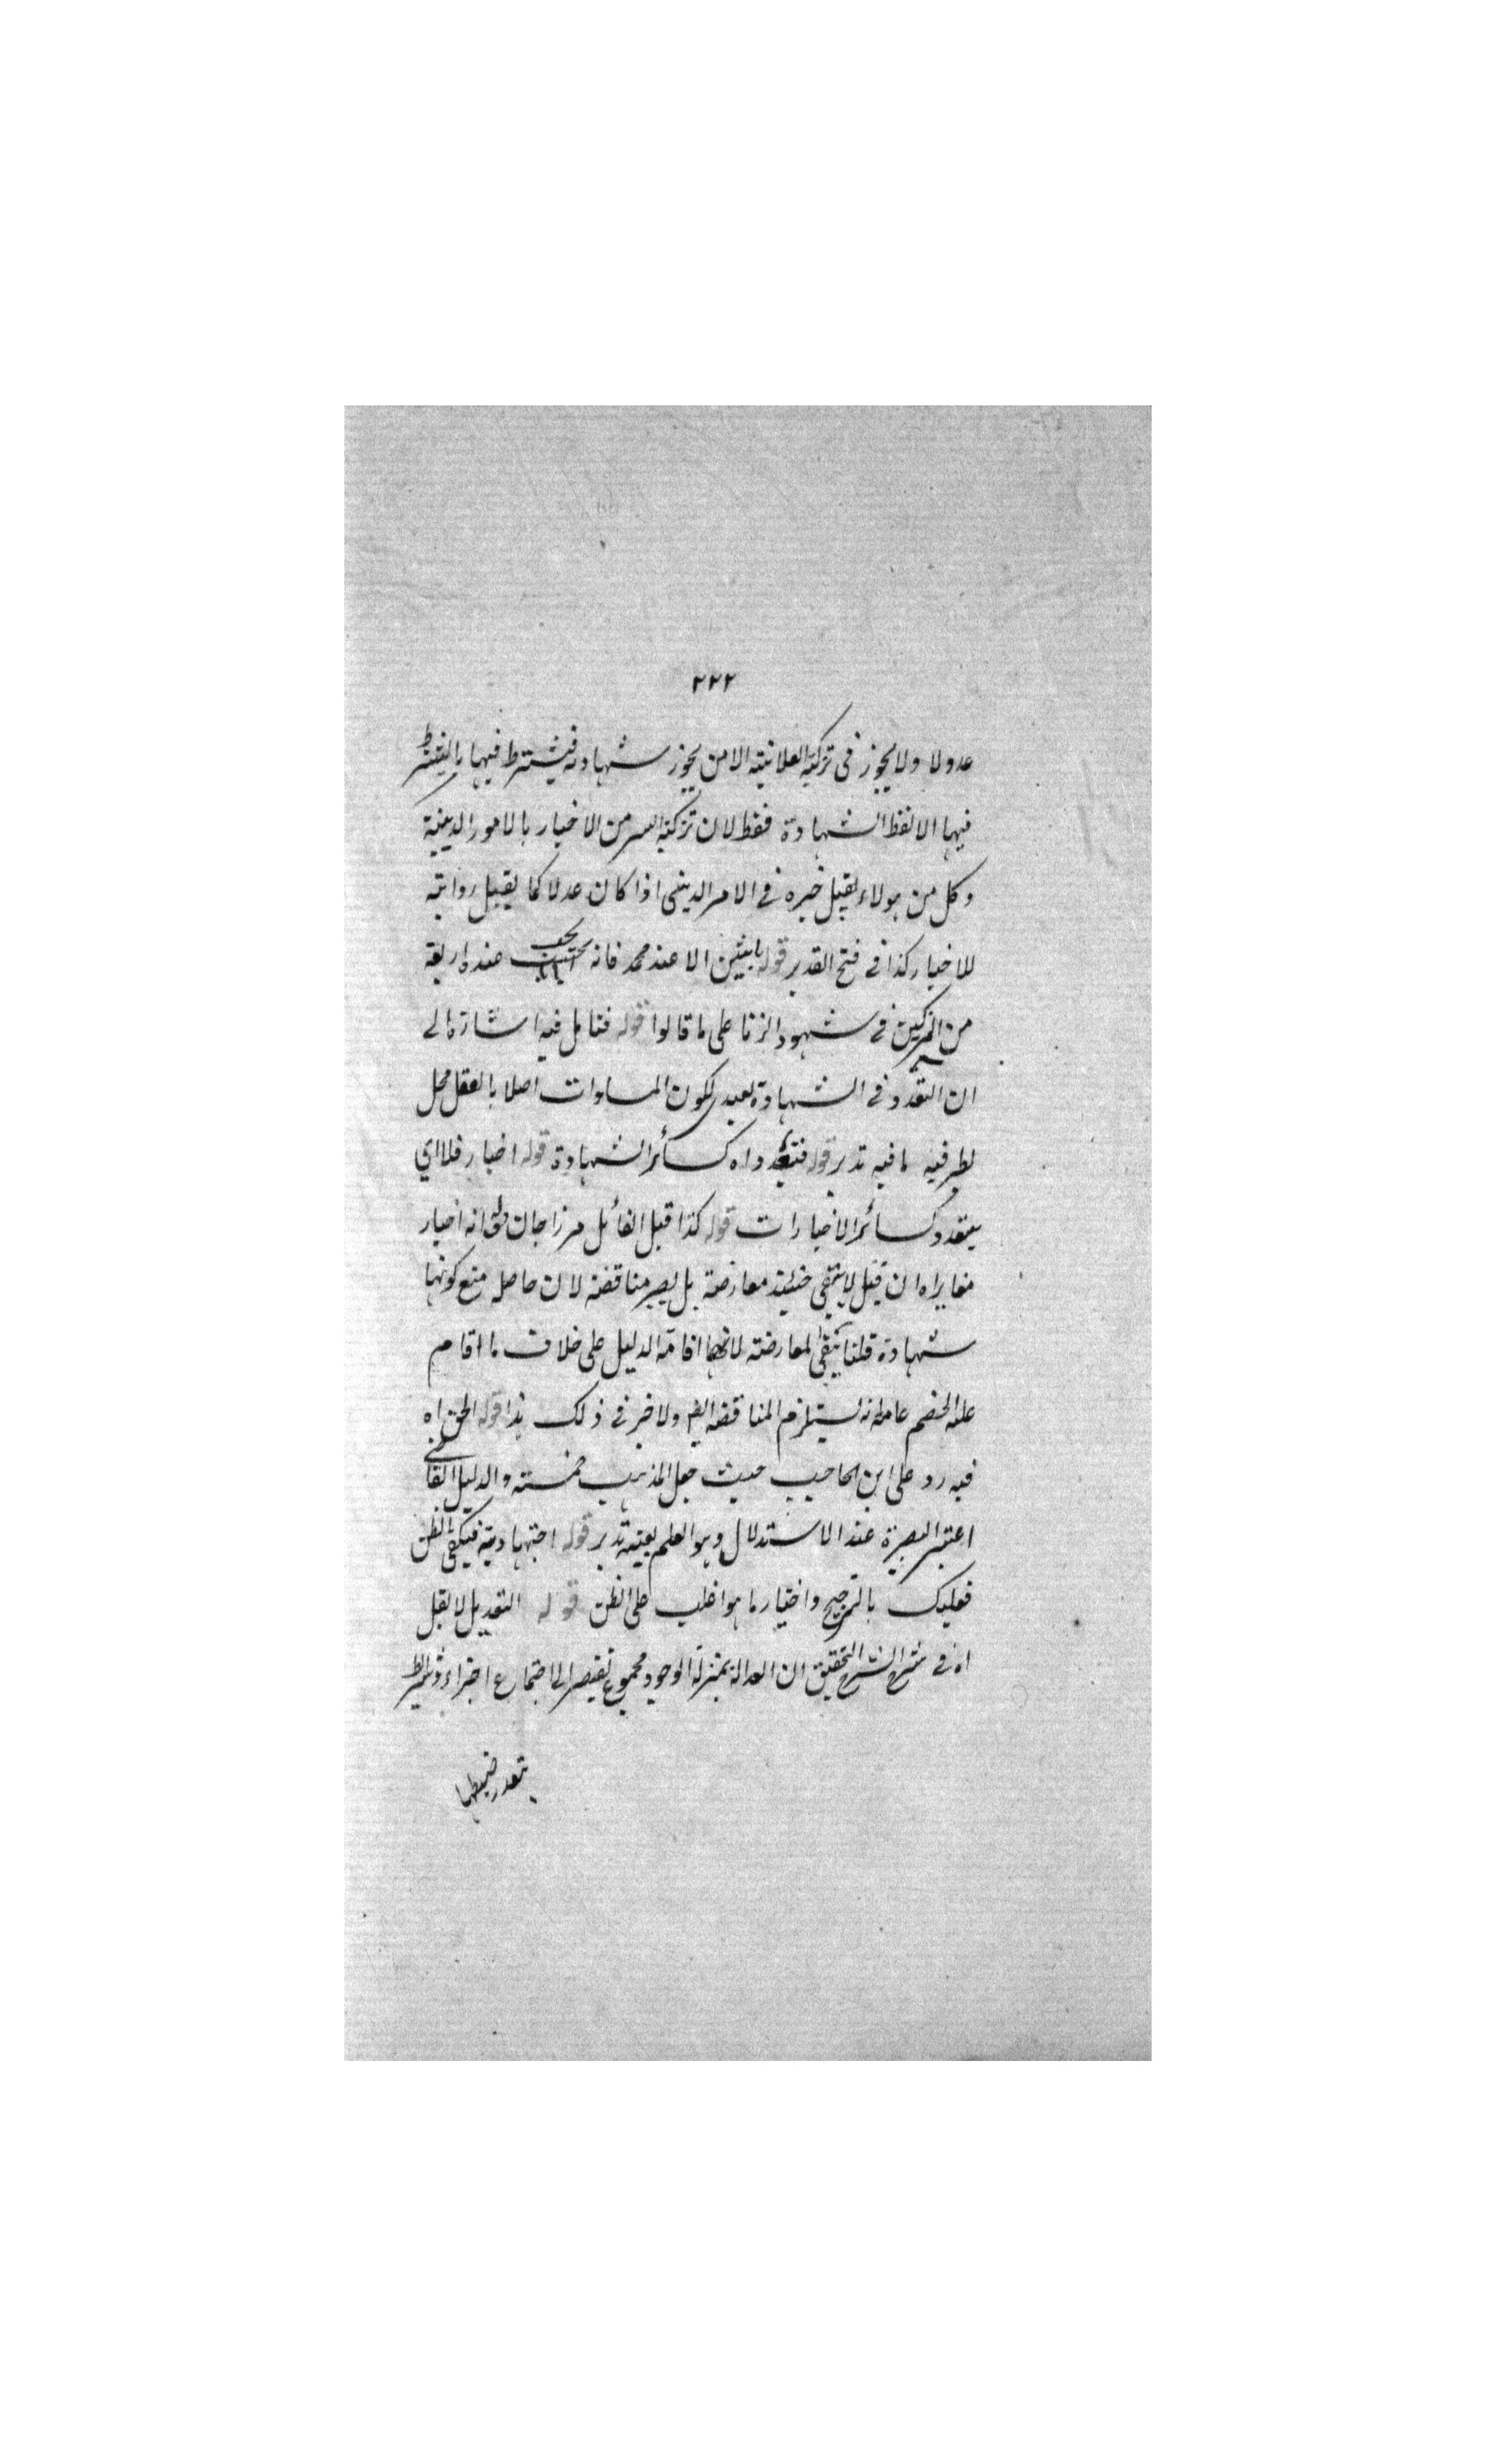 ٢٢٢
عدولا ولا يجوز فى تزكية العلانية الا من يجوز شهادته فيشترط فيها ما يشترط
فيها الا لفظ الشهادة فقط لان تزكية السر من الاخبار بالامور الدينية
وكل من هولاء يقبل خبره فى الامر الدينى اذا كان عدلا كما يقبل روايته
للاخبار كذا فى فتح القدير قوله باثنين الا عند محمد فانه عنده اربعة
من المزكين فى شهود الزنا على ما قالوا قوله فتامل فيه اشارة الى
ان التعدد فى الشهادة لكون المساوات اصلا بالعقل محل
لطرفيه ما فيه تدبر قوله فتعدد اه كسائر الشهادة قوله اخبار فلا اي
يتعدد كسائر الاخبارات قوله كذا قيل القائل مرزا جان انه اخبار
مغايرا ه ان قيل لا يبقى حينئذ معارضة بل يصير مناقضة لان حاصله منع كونها
شهادة قلنا يبقى المعارضة لانها اقامة الدليل على خلاف ما اقام
عليه الخصم يستلزم المناقضة ولا ضر فى ذلك هذا قوله الحق اه
فيه رد على ابن الحاجب حيث جعل المذاهب خمسة والدليل
اعتبر البصيرة عند الاستدلال وهو العلم بعينه تدبر قوله اجتهادية فيكفى الظن
فعليك بالترجيح واختيار ما هو اغلب على الظن قوله التعديل لا يقبل
اه فى شرح الشرح التحقيق ان العدالة بمنزلة الوجود مجموع يفتقر الى اجتماع اجزاء وشرائط
يتعذر ضبطها